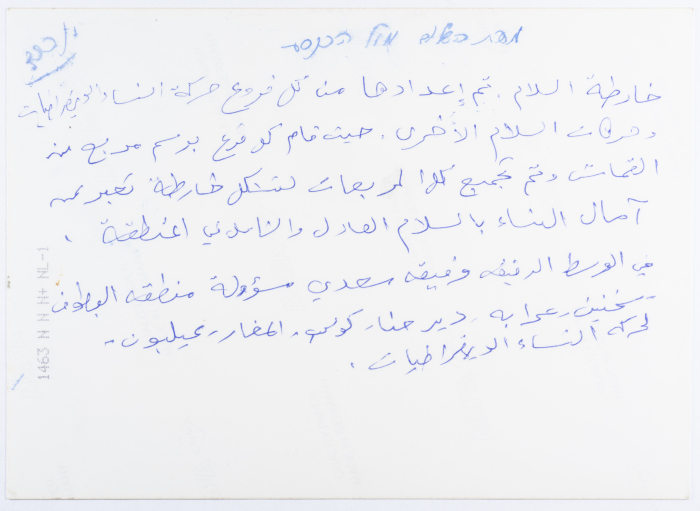 מפת השלום מול הכנסת
خارطة السلام. تم إعدادها من كل فروع حركة النساء الديمقراطيات
وحركات السلام الأخرى. حيث قام كل فرع برسم مربع من
القماش وتم تجميع كل المربعات لتشكل خارطة تعبر عن
آمال النساء بالسلام العادل والشامل في المنطقة.
في الوسط الرفيقه رفيقه سعدي مسؤولة منطقه البطوف
- سخنين - عرابه - دير حنا - كوكب - المغار - عيلبون -
لحركة النساء الديمقراطيات.
1463 N N N+ NL-1